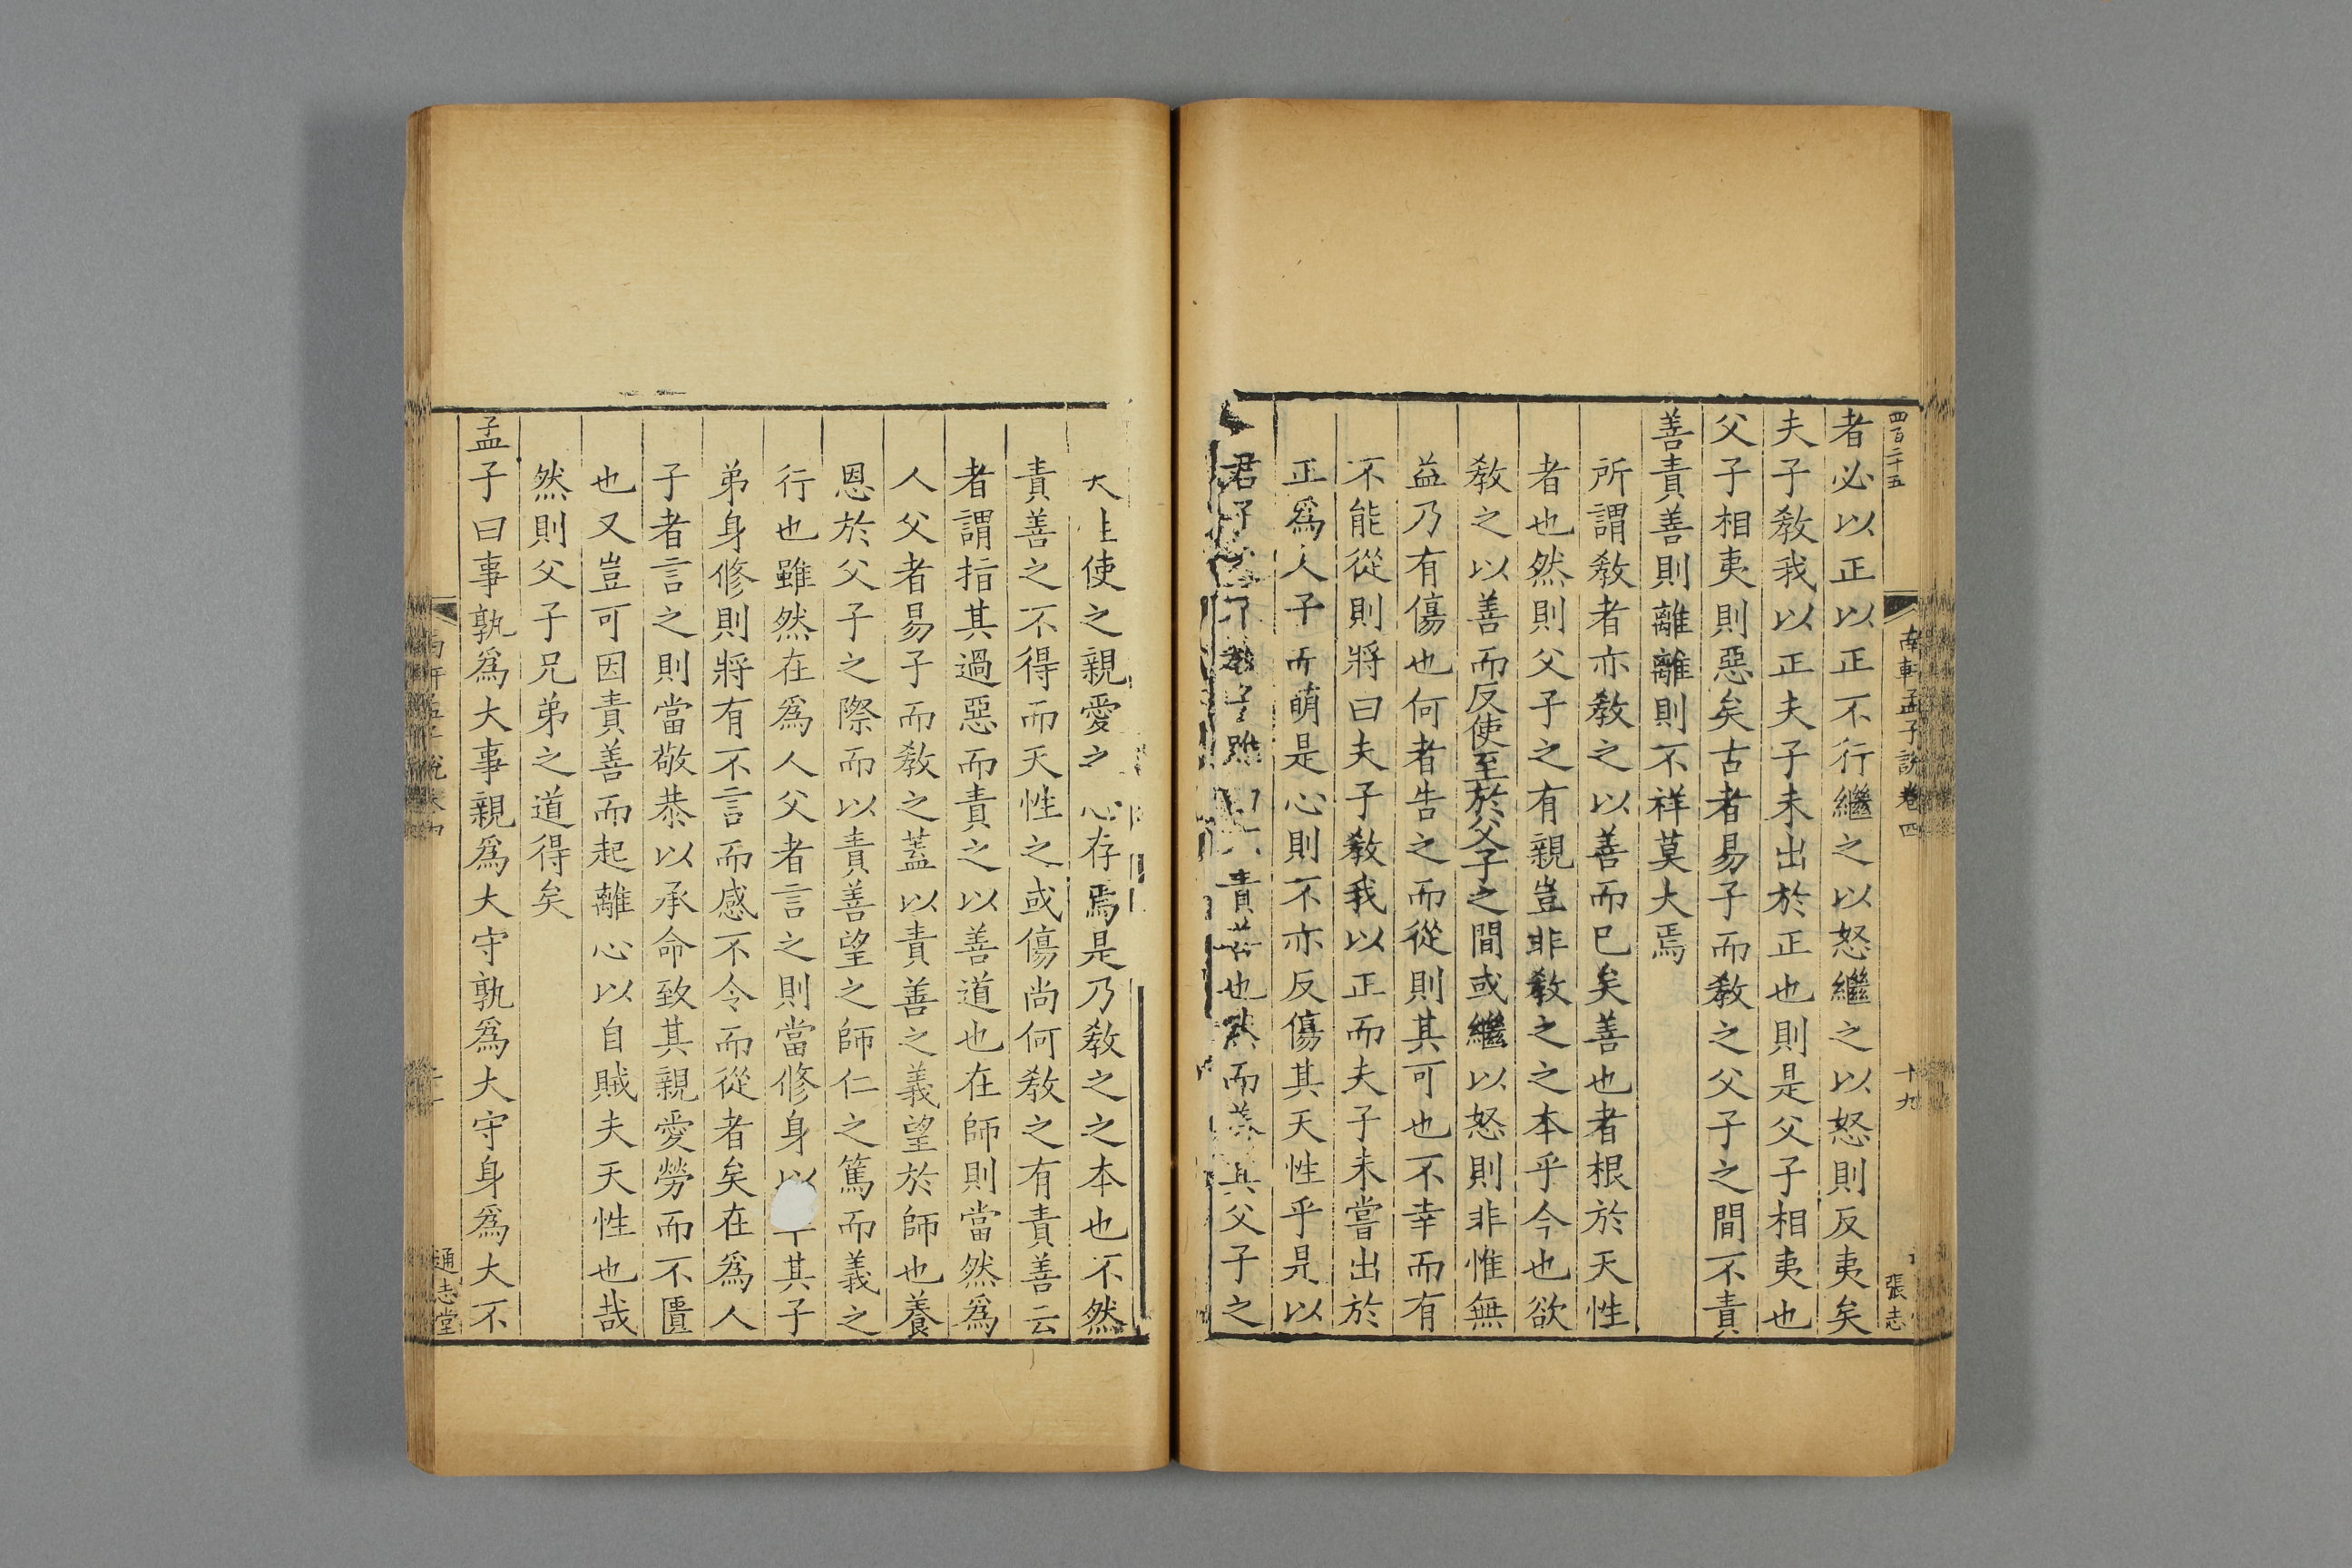 四百二十五
南軒孟子說卷四
十九
張志
者必以正以正不行繼之以怒繼之以怒則反夷矣
夫子敎我以正夫子未出於正也則是父子相夷也
父子相夷則惡矣古者易子而敎之父子之間不責
善責善則離離則不祥莫大焉
所謂敎者亦敎之以善而已矣善也者根於天性
者也然則父子之有親豈非敎之之本乎今也欲
敎之以善而反使至於父子之間或繼以怒則非惟無
益乃有傷也何者告之而從則其可也不幸而有
不能從則將曰夫子敎我以正而夫子未嘗出於
正爲人子而萌是心則不亦反傷其天性乎是以
君子之不敎子雖責善也然而養其父子之
天性使之親愛之心存焉是乃敎之之本也不然
責善之不得而天性之或傷尚何敎之有責善云
者謂指其過惡而責之以善道也在師則當然爲
人父者易子而敎之蓋以責善之義望於師也養
恩於父子之際而以責善望之師仁之篤而義之
行也雖然在爲人父者言之則當修身以其子
弟身修則將有不言而感不令而從者矣在爲人
子者言之則當敬恭以承命致其親愛勞而不匱
也又豈可因責善而起離心以自賊夫天性也哉
然則父子兄弟之道得矣
孟子曰事孰爲大事親爲大守孰爲大守身爲大不
通志堂